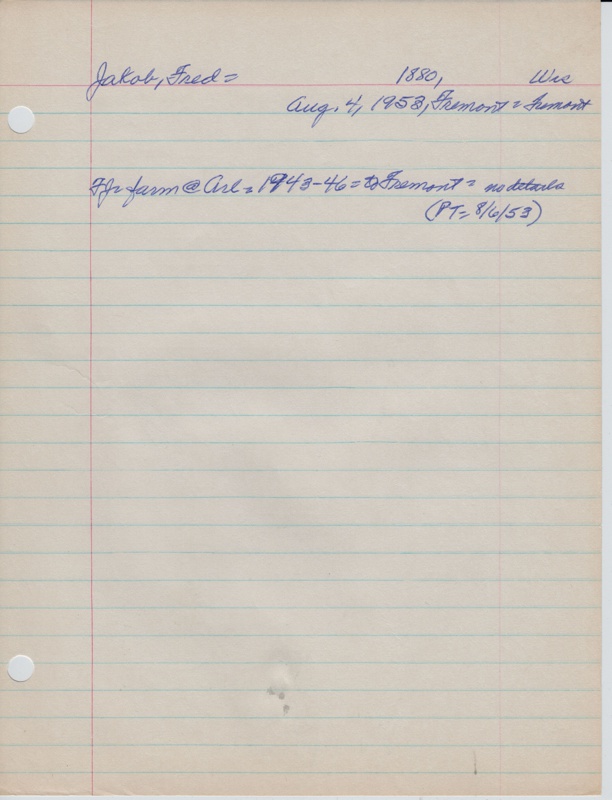 Jakob, Fred = 1880, Wis
Aug. 4, 1953, Fremont = Fremont
FJ = farm @ Arl = 1943-46 = to Fremont = no details
(PT = 8/6/53)